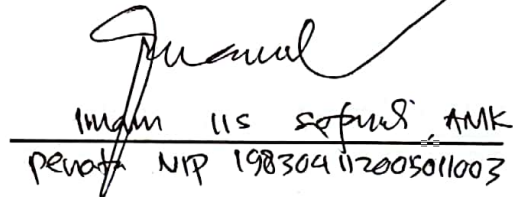 Imam IIS Sapuadi, AMK
penata NIP 198304112005011003